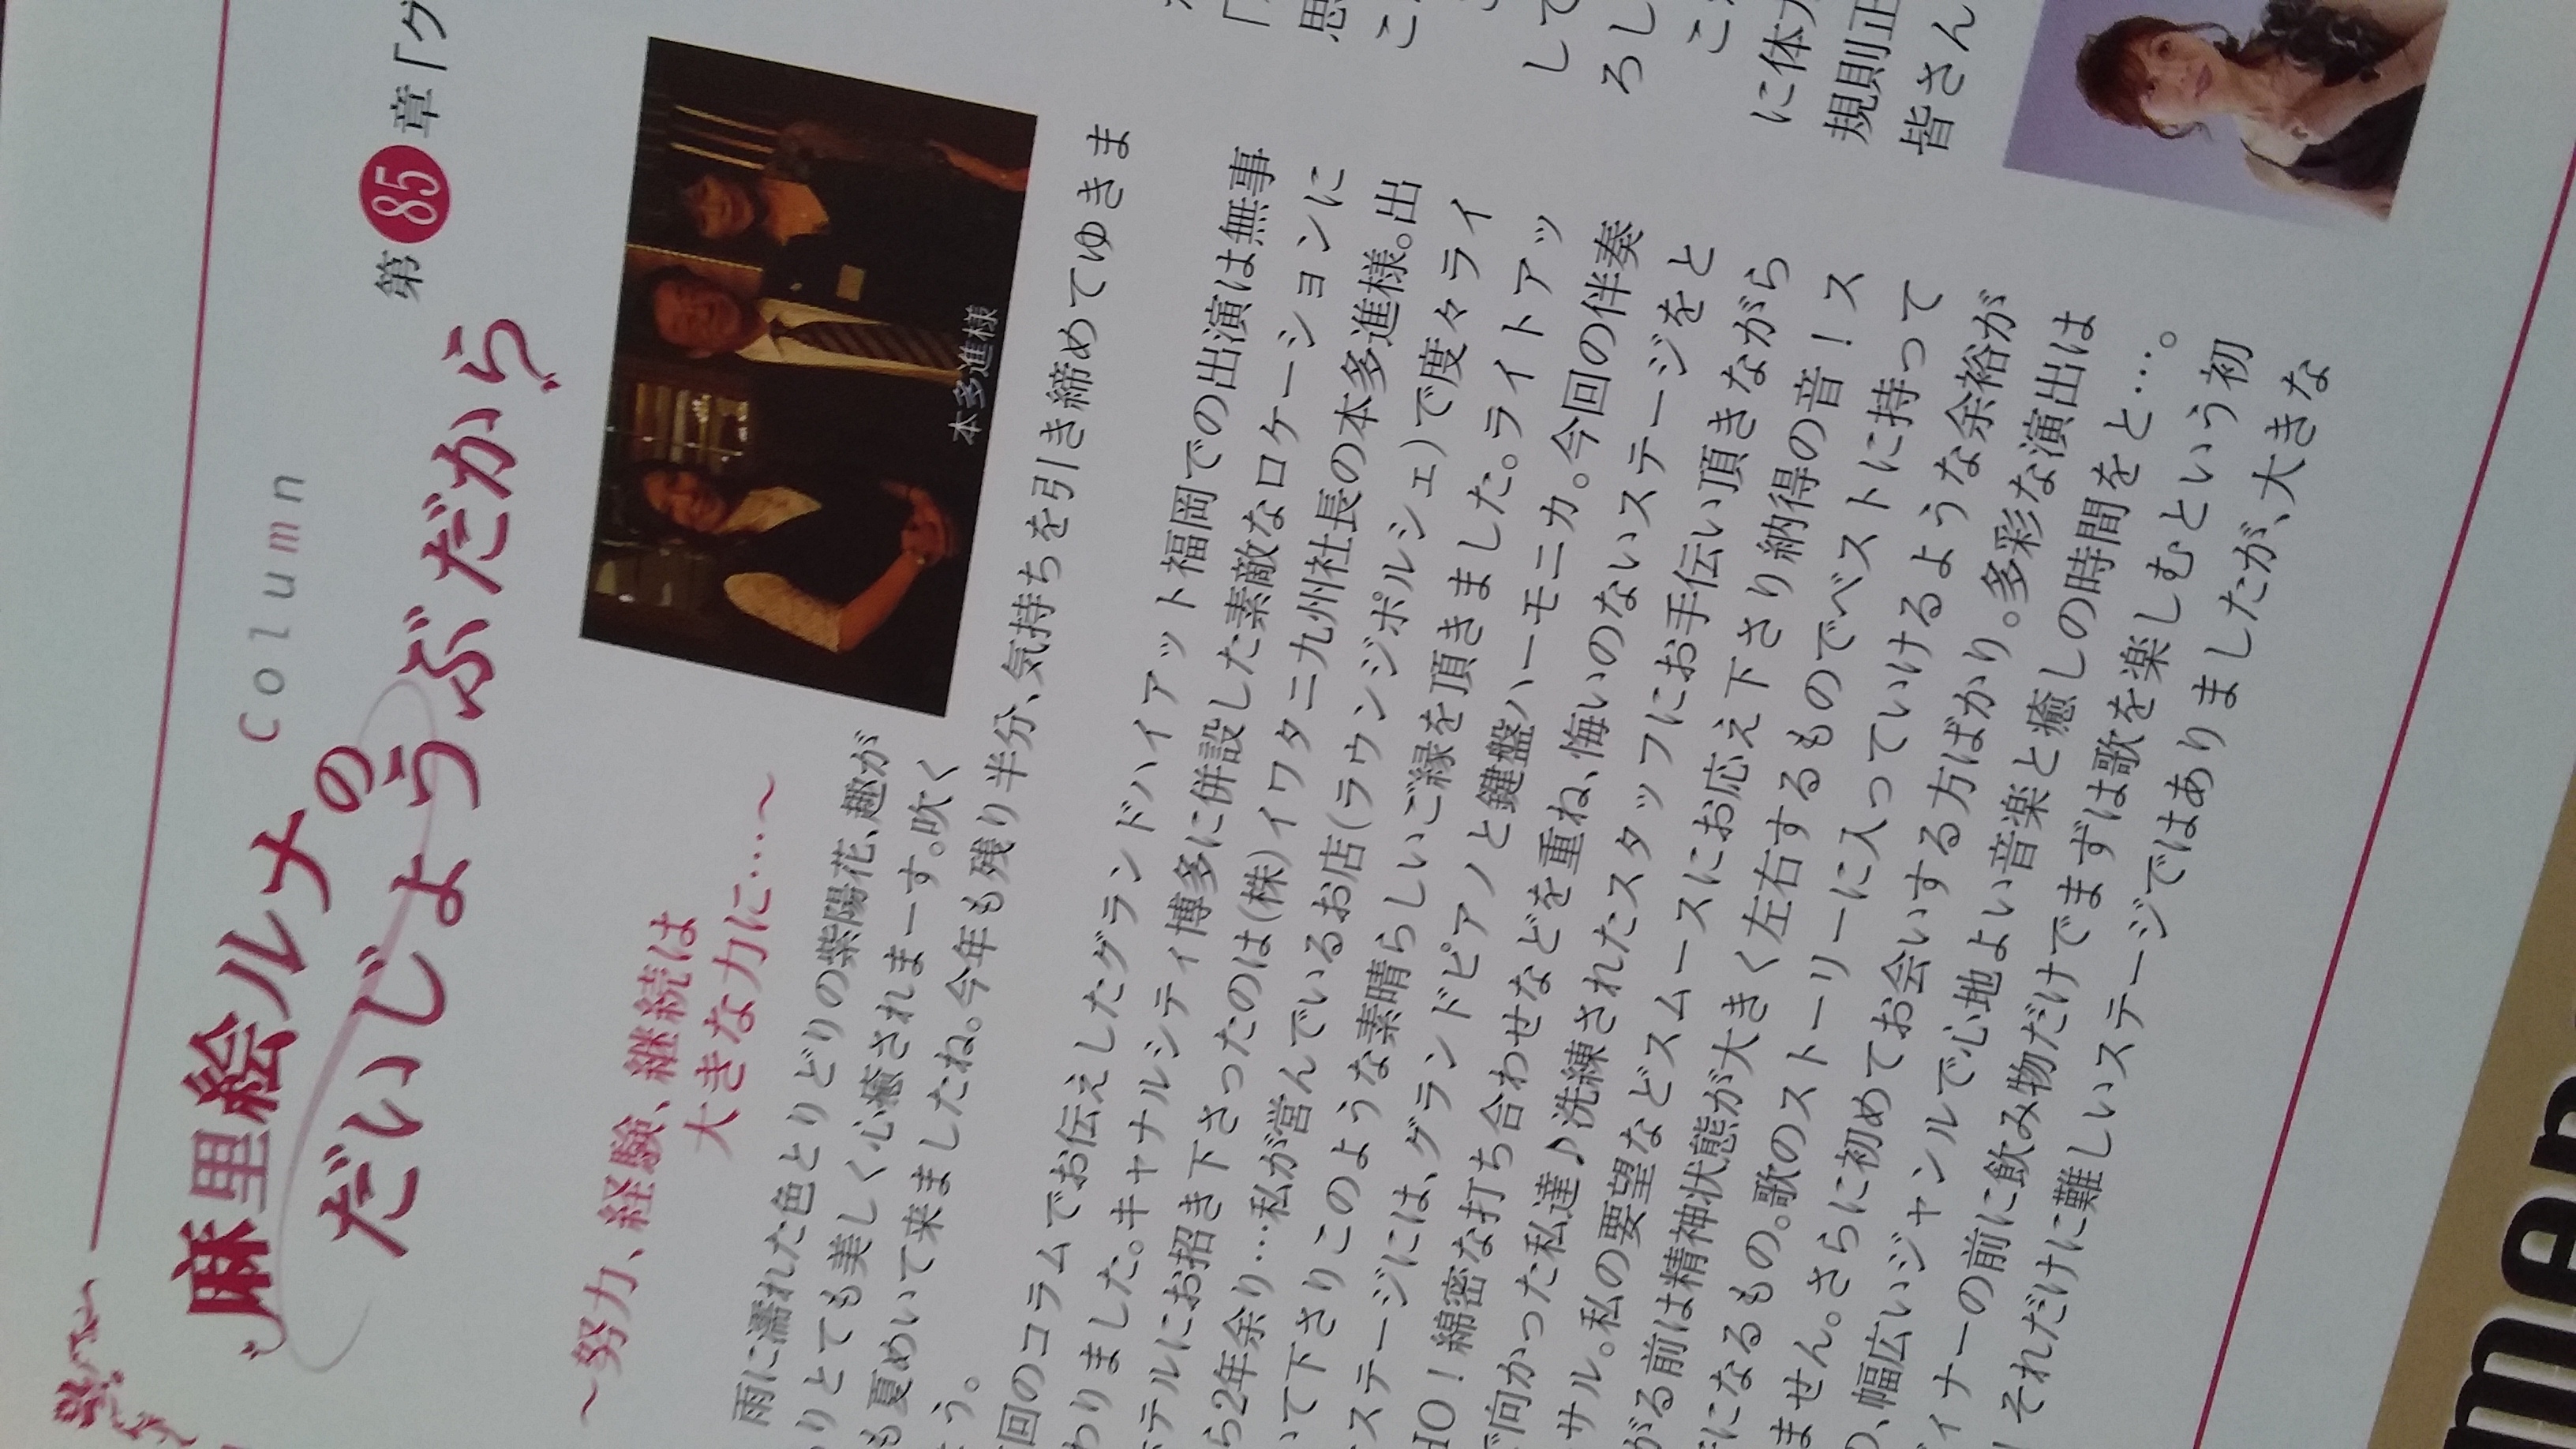 Column
麻里絵ルナの
だいじょうぶだから
第85章「グ
～努力、経験、継続は
大きな力に…～
本多進様
雨に濡れた色とりどりの紫陽花、趣が
りとても美しく心癒されまーす。吹く
も夏めいて来ましたね。今年も残り半分、気持ちを引き締めてゆきま
う。
回のコラムでお伝えしたグランドハイアット福岡での出演は無事
わりました。キャナルシティ博多に併設した素敵なロケーションに
テルにお招き下さったのは(株)イワタニ九州社長の本多進様。出
ら2年余り…私が営んでいるお店(ラウンジポルシェ)で度々ライ
いて下さりこのような素晴らしいご縁を頂きました。ライトアッ
ステージには、グランドピアノと鍵盤ハーモニカ。今回の伴奏
HO！綿密な打ち合わせなどを重ね、悔いのないステージをと
で向かった私達♪洗練されたスタッフにお手伝い頂きながら
サル。私の要望などスムースにお応え下さり納得の音！ス
がる前は精神状態が大きく左右するものでベストに持って
になるもの。歌のストーリーに入っていけるような余裕が
ません。さらに初めてお会いする方ばかり。多彩な演出は
、幅広いジャンルで心地よい音楽と癒しの時間をと…。
ィナーの前に飲み物だけでまずは歌を楽しむという初
！それだけに難しいステージではありましたが、大きな
思
こ
して
ろし
こ
に体
規則正
皆さん
men